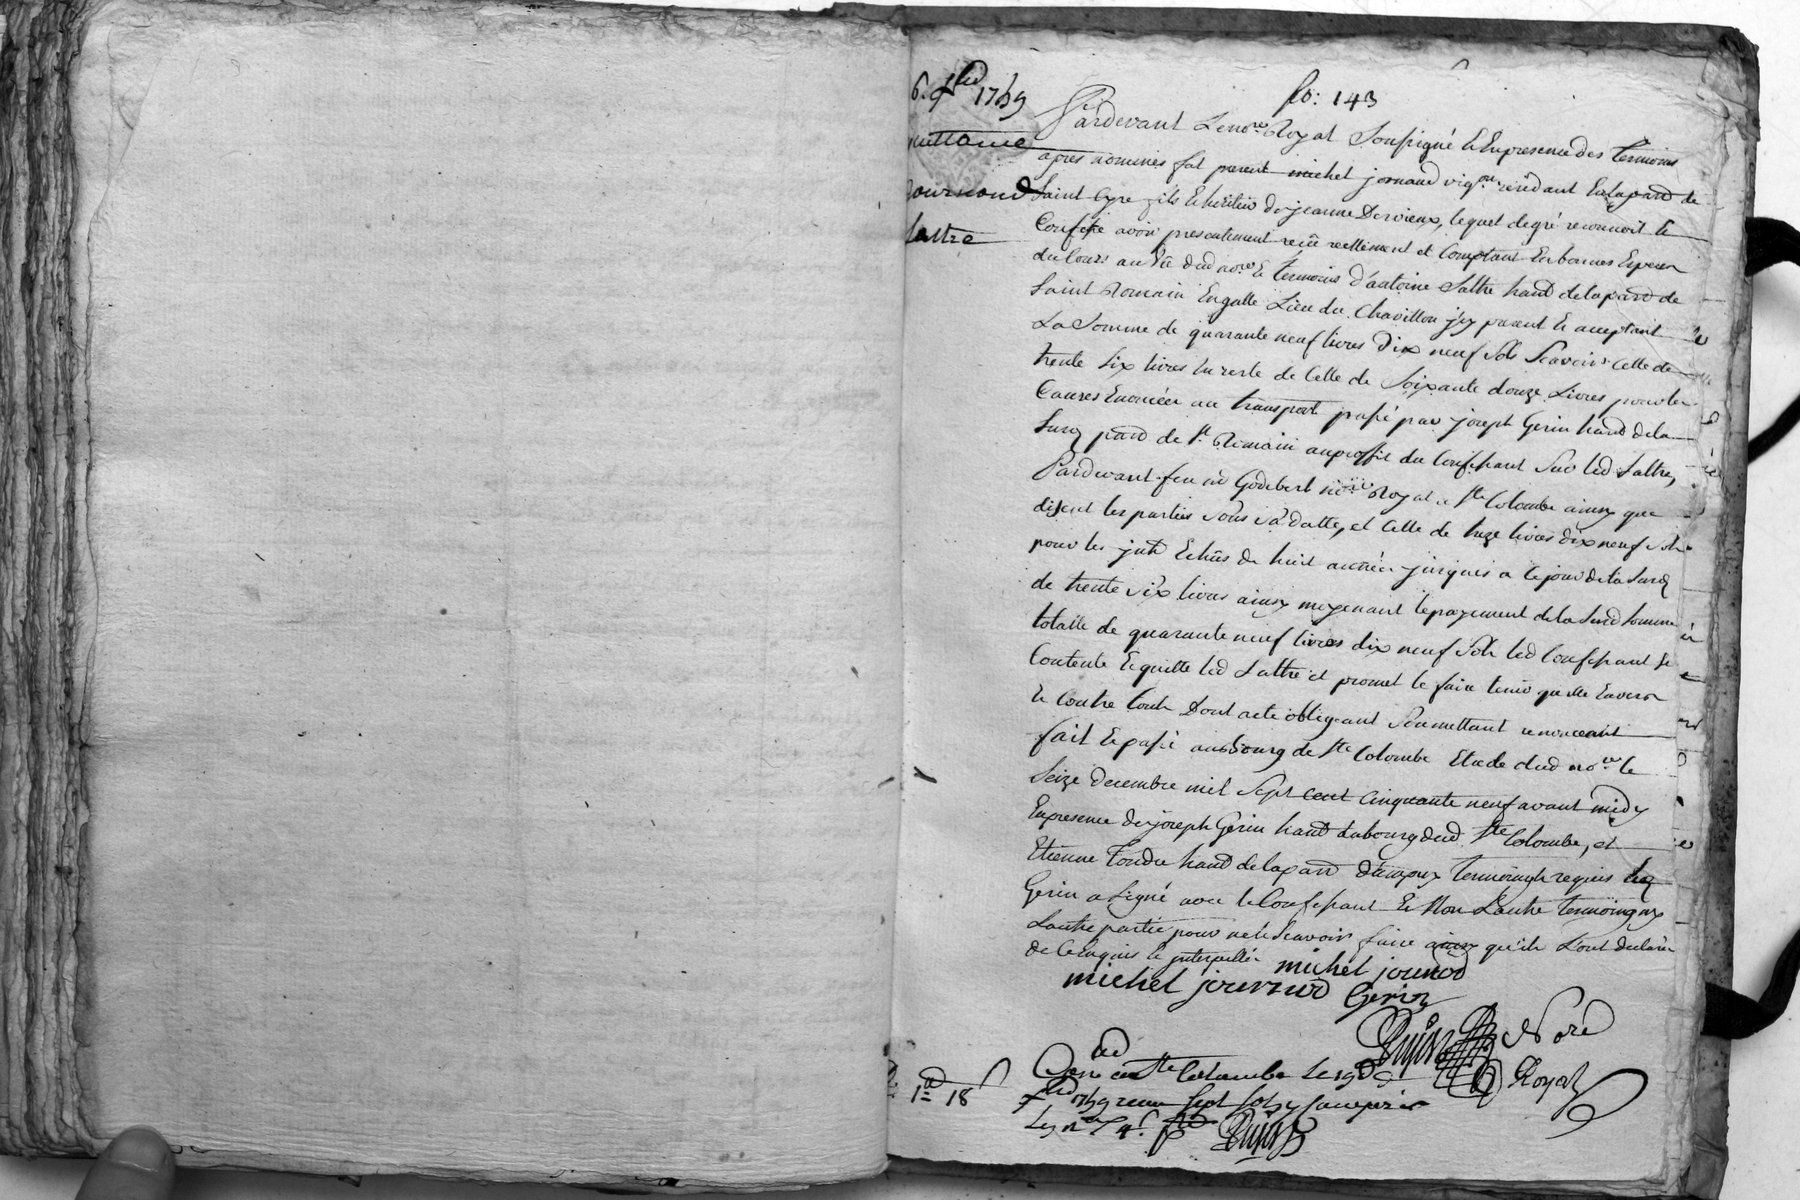 fo: 143
6. xbre 1759
quittance
Journoud
Sattre
Pardevant Le nore Royal Soussigné et En presence des temoins
apres nommés fut present michel jornaud vigon residant En la parr de
Saint Cyre fils et heritier de jeanne Dervieux, lequel de gré reconnoit et
Confesse avoir presentement reçû reellement et Comptant En bonnes Especes
du Cours au vû dud nore et temoins d'antoine Sattre habt de la parr de
Saint Romain En galle Lieu du Chavillon jcy present et acceptant
La Somme de quarante neuf livres dix neuf Sols Scavoir Celle de
trente Six livres En reste de Celle de Soixante douze Livres pour les
Causes Enoncées au transport passé par joseph Gerin habt de la
Susd parr de St Romain au proffit du Confessant Sur led Sattre,
Pardevant feu me Godebert nore Royal a Ste Colombe ainsy que
disent les parties sous sa datte, et Celle de treize livres dix neuf Sols
pour les jnts Echûs de huit années jusques a Ce jour de la Susd
de trente six livres ainsy moyenant le payement de la Susd Somme
totalle de quarante neuf livres dix neuf Sols led Confessant Se
Contente Et quitte led Sattre et promet le faire tenir quitte Envers
et Contre touts Dont acte obligeant Soumettant renonceant
fait Et passé au bourg de Ste Colombe Etude dud nore le
Seize decembre mil Sept cent Cinquante neuf avant midy
En presence de joseph Gerin habt du bourg dud Ste Colombe, et
Etienne habt de la parr d'ampuy temoingts requis led
Gerin a Signé avec le Confessant Et Non L'autre temoing ny
L'autre partie pour ne le Scavoir faire ainsy qu'ils L'ont declaré
de Ce enquis et jnterpellés
michel jounod
michel journud Gerin
Nore
Royal
1# 18s
Con a Ste Colombe Le 19
xbre 1759 reçu Sept Sols